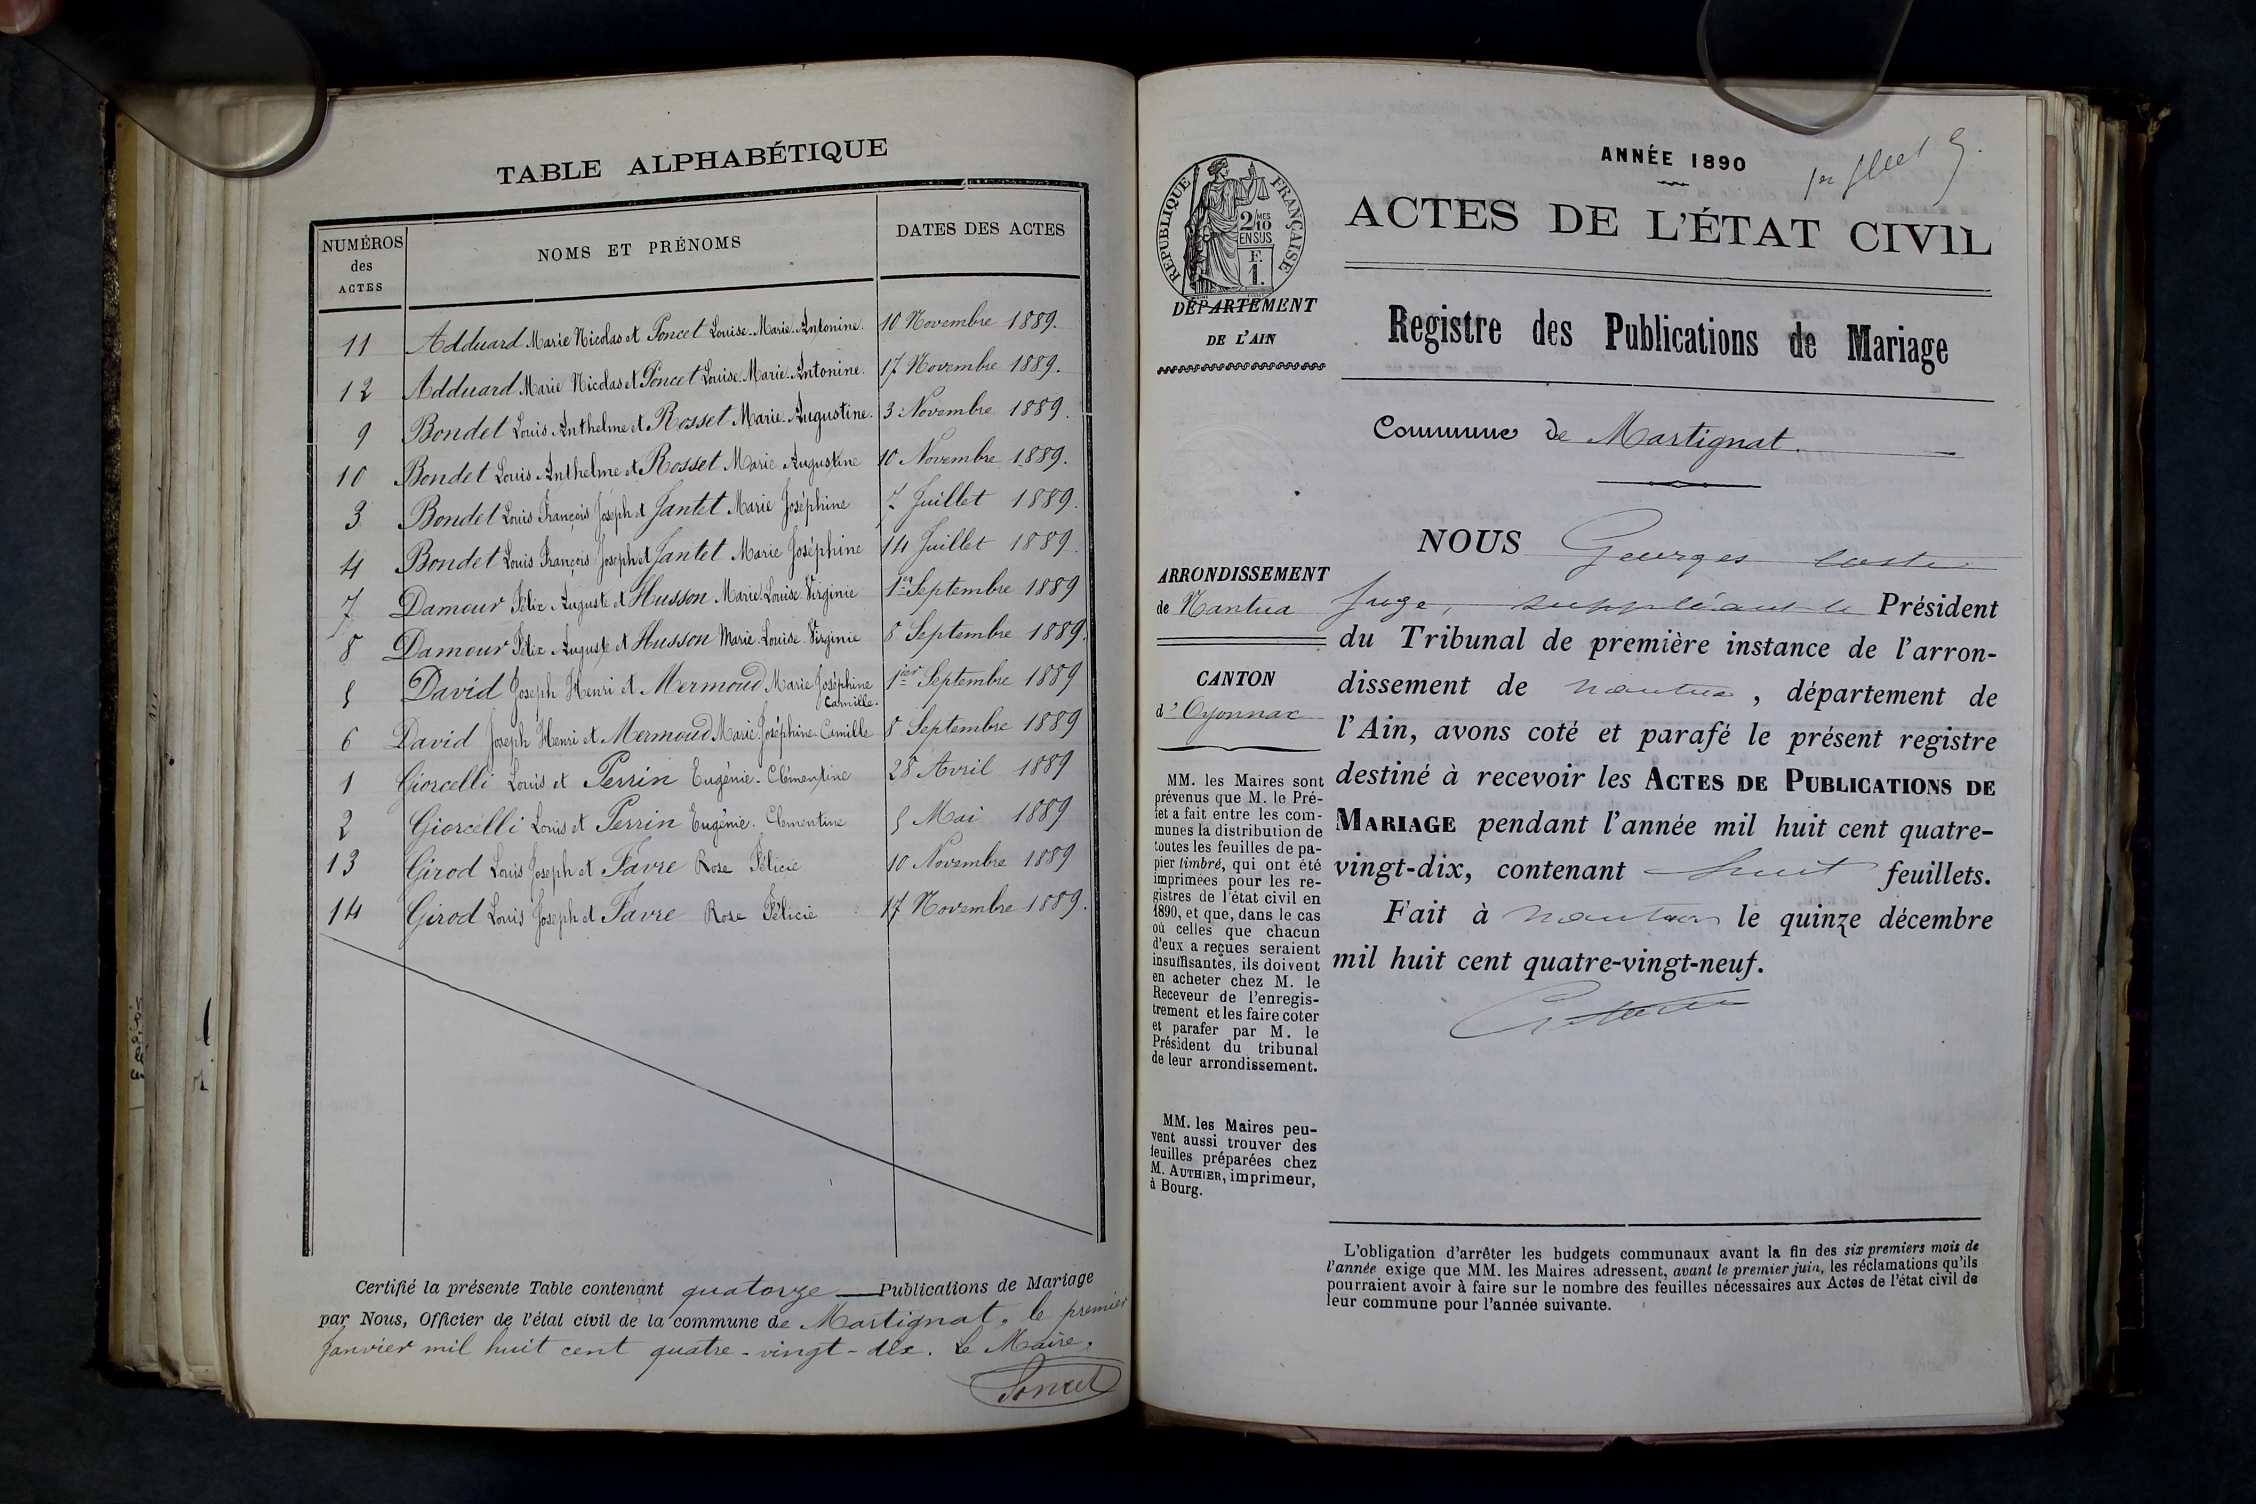 TABLE ALPHABÉTIQUE
NUMÉROS des ACTES
NOMS ET PRÉNOMS
DATES DES ACTES
11 Adduard Marie Nicolas et Poncet Louise Marie Antonine. 10 Novembre 1889.
12 Adduard Marie Nicolas et Poncet Louise Marie Antonine. 17 Novembre 1889.
9 Bondet Louis Anthelme et Rosset Marie Augustine. 3 Novembre 1889.
10 Bondet Louis Anthelme et Rosset Marie Augustine 10 Novembre 1889.
3 Bondet Louis François Joseph et Jantet Marie Joséphine 7 Juillet 1889.
4 Bondet Louis François Joseph et Jantet Marie Joséphine 14 Juillet 1889.
7 Damour Félix Auguste et Husson Marie Louise Virginie 1er Septembre 1889
8 Damour Félix Auguste et Husson Marie Louise Virginie 8 Septembre 1889.
5 David Joseph Henri et Mermoud Marie Joséphine Camille. 1ier Septembre 1889
6 David Joseph Henri et Mermoud Marie Joséphine Camille 8 Septembre 1889
1 Giorcelli Louis et Perrin Eugénie Clémentine 28 Avril 1889
2 Giorcelli Louis et Perrin Eugénie Clementine 5 Mai 1889
13 Girod Louis Joseph et Favre Rose Félicie 10 Novembre 1889
14 Girod Louis Joseph et Favre Rose Félicie 17 Novembre 1889.
Certifié la présente Table contenant quatorze Publications de Mariage
par Nous, Officier de l'état civil de la commune de Martignat, le premier
Janvier mil huit cent quatre-vingt-dix. Le Maire,
Poncet
ANNÉE 1890
1er feuillet
RÉPUBLIQUE FRANÇAISE
2/10 MES
EN SUS
F.
1.
ACTES DE L'ÉTAT CIVIL
DÉPARTEMENT
DE L'AIN
Registre des Publications de Mariage
Commune de Martignat.
ARRONDISSEMENT
de Nantua
CANTON
d'Oyonnax
MM. les Maires sont
prévenus que M. le Pré-
fet a fait entre les com-
munes la distribution de
toutes les feuilles de pa-
pier timbré, qui ont été
imprimées pour les re-
gistres de l'état civil en
1890, et que, dans le cas
où celles que chacun
d'eux a reçues seraient
insuffisantes, ils doivent
en acheter chez M. le
Receveur de l'enregis-
trement et les faire coter
et parafer par M. le
Président du tribunal
de leur arrondissement.
MM. les Maires peu-
vent aussi trouver des
feuilles préparées chez
M. AUTHIER, imprimeur,
à Bourg.
NOUS Georges
Juge, suppléant le Président
du Tribunal de première instance de l'arron-
dissement de Nantua, département de
l'Ain, avons coté et parafé le présent registre
destiné à recevoir les ACTES DE PUBLICATIONS DE
MARIAGE pendant l'année mil huit cent quatre-
vingt-dix, contenant huit feuillets.
Fait à Nantua le quinze décembre
mil huit cent quatre-vingt-neuf.
L'obligation d'arrêter les budgets communaux avant la fin des six premiers mois de
l'année exige que MM. les Maires adressent, avant le premier juin, les réclamations qu'ils
pourraient avoir à faire sur le nombre des feuilles nécessaires aux Actes de l'état civil de
leur commune pour l'année suivante.